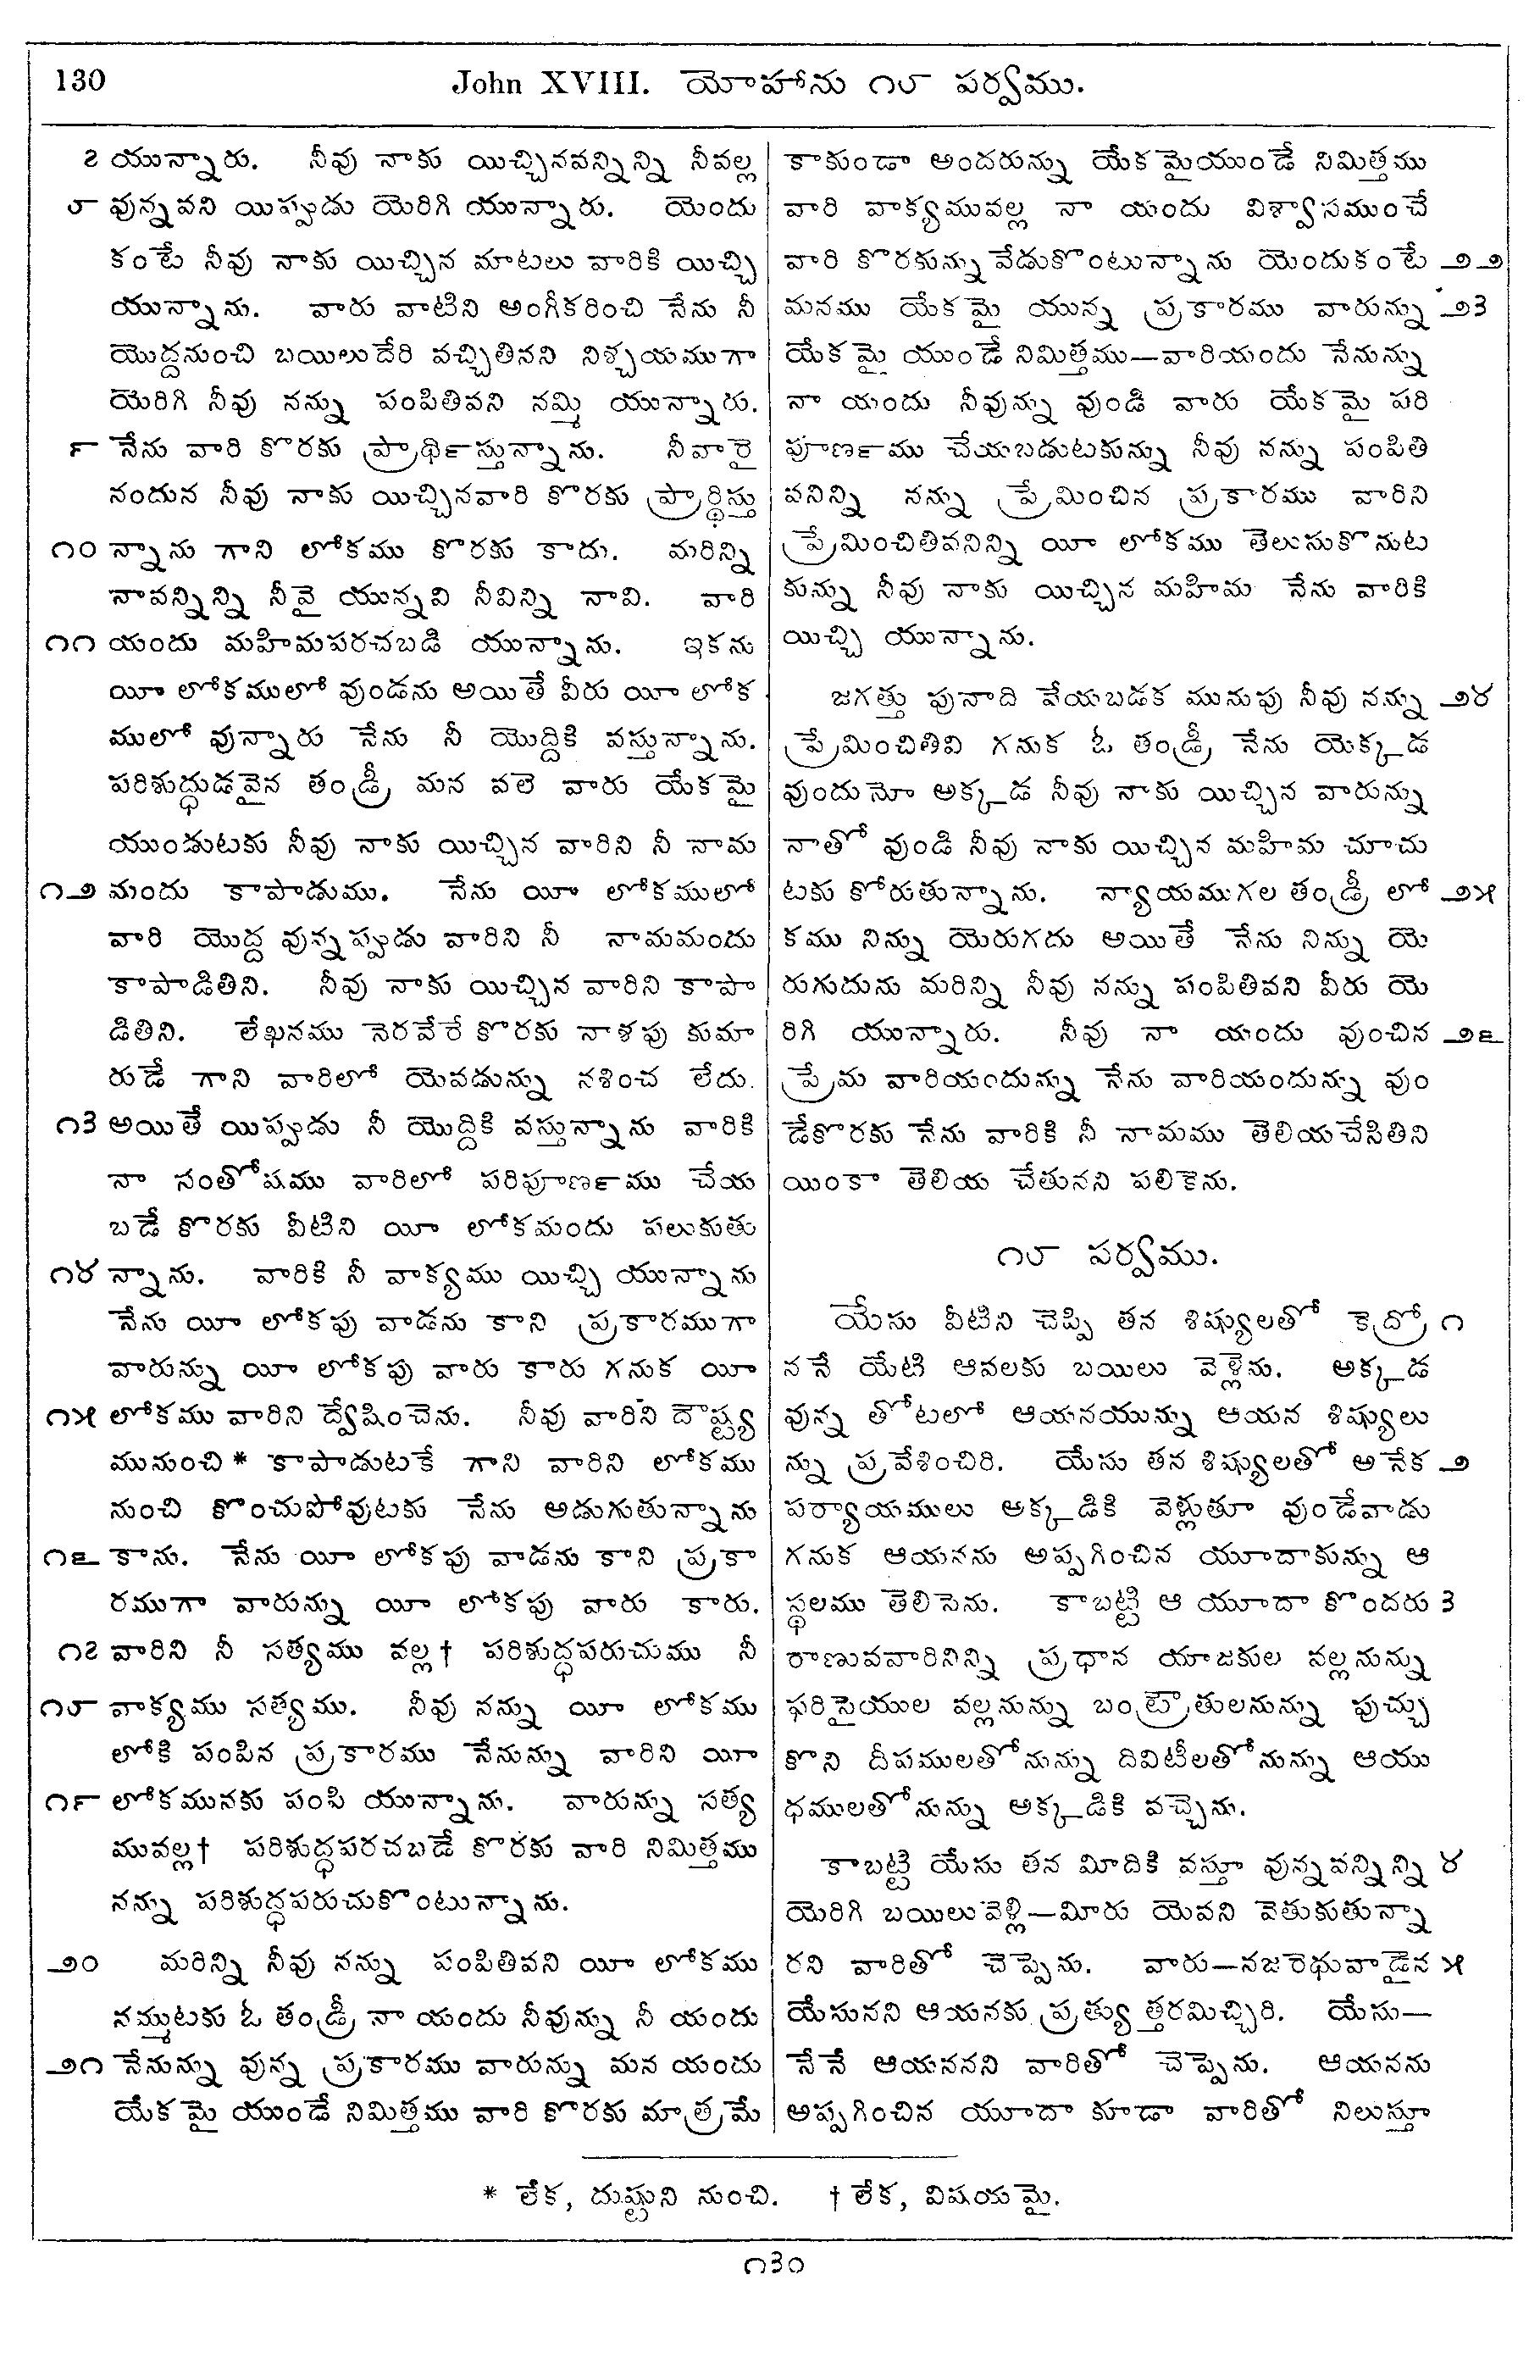 130 John XVIII. యోహాను ౧౮ పర్వము.
౭ యున్నారు. నీవు నాకు యిచ్చినవన్నిన్ని నీవల్ల
౮ వున్నవని యిప్పుడు యెరిగి యున్నారు. యెందు
కంటే నీవు నాకు యిచ్చిన మాటలు వారికి యిచ్చి
యున్నాను. వారు వాటిని అంగీకరించి నేను నీ
యొద్దనుంచి బయిలుదేరి వచ్చితినని నిశ్చయముగా
యెరిగి నీవు నన్ను పంపితివని నమ్మి యున్నారు.
౯ నేను వారి కొరకు ప్రార్థిస్తున్నాను. నీవారై
నందున నీవు నాకు యిచ్చినవారి కొరకు ప్రార్థిస్తు
౧౦ న్నాను గాని లోకము కొరకు కాదు. మరిన్ని
నావన్నిన్ని నీవై యున్నవి నీవిన్ని నావి. వారి
౧౧ యందు మహిమపరచబడి యున్నాను. ఇకను
యీ లోకములో వుండను అయితే వీరు యీ లోక
ములో వున్నారు నేను నీ యొద్దికి వస్తున్నాను.
పరిశుద్ధుడవైన తండ్రీ మన వలె వారు యేకమై
యుండుటకు నీవు నాకు యిచ్చిన వారిని నీ నామ
౧౨ మందు కాపాడుము. నేను యీ లోకములో
వారి యొద్ద వున్నప్పుడు వారిని నీ నామమందు
కాపాడితిని. నీవు నాకు యిచ్చిన వారిని కాపా
డితిని. లేఖనము నెరవేరే కొరకు నాళపు కుమా
రుడే గాని వారిలో యెవడున్ను నశించ లేదు.
౧౩ అయితే యిప్పుడు నీ యొద్దికి వస్తున్నాను వారికి
నా సంతోషము వారిలో పరిపూర్ణము చేయ
బడే కొరకు వీటిని యీ లోకమందు పలుకుతు
౧౪ న్నాను. వారికి నీ వాక్యము యిచ్చి యున్నాను
నేను యీ లోకపు వాడను కాని ప్రకారముగా
వారున్ను యీ లోకపు వారు కారు గనుక యీ
౧౫ లోకము వారిని ద్వేషించెను. నీవు వారిని దౌష్ట్య
మునుంచి* కాపాడుటకే గాని వారిని లోకము
నుంచి కొంచుపోవుటకు నేను అడుగుతున్నాను
౧౬ కాను. నేను యీ లోకపు వాడను కాని ప్రకా
రముగా వారున్ను యీ లోకపు వారు కారు.
౧౭ వారిని నీ సత్యము వల్ల† పరిశుద్ధపరుచుము నీ
౧౮ వాక్యము సత్యము. నీవు నన్ను యీ లోకము
లోకి పంపిన ప్రకారము నేనున్ను వారిని యీ
౧౯ లోకమునకు పంపి యున్నాను. వారున్ను సత్య
మువల్ల† పరిశుద్ధపరచబడే కొరకు వారి నిమిత్తము
నన్ను పరిశుద్ధపరుచుకొంటున్నాను.
౨౦ మరిన్ని నీవు నన్ను పంపితివని యీ లోకము
నమ్ముటకు ఓ తండ్రీ నా యందు నీవున్ను నీ యందు
౨౧ నేనున్ను వున్న ప్రకారము వారున్ను మన యందు
యేకమై యుండే నిమిత్తము వారి కొరకు మాత్రమే
కాకుండా అందరున్ను యేకమైయుండే నిమిత్తము
వారి వాక్యమువల్ల నా యందు విశ్వాసముంచే
వారి కొరకున్ను వేడుకొంటున్నాను యెందుకంటే ౨౨
మనము యేకమై యున్న ప్రకారము వారున్ను ౨౩
యేకమై యుండే నిమిత్తము—వారియందు నేనున్ను
నా యందు నీవున్ను వుండి వారు యేకమై పరి
పూర్ణము చేయబడుటకున్ను నీవు నన్ను పంపితి
వనిన్ని నన్ను ప్రేమించిన ప్రకారము వారిని
ప్రేమించితివనిన్ని యీ లోకము తెలుసుకొనుట
కున్ను నీవు నాకు యిచ్చిన మహిమ నేను వారికి
యిచ్చి యున్నాను.
జగత్తు పునాది వేయబడక మునుపు నీవు నన్ను ౨౪
ప్రేమించితివి గనుక ఓ తండ్రీ నేను యెక్కడ
వుందునో అక్కడ నీవు నాకు యిచ్చిన వారున్ను
నాతో వుండి నీవు నాకు యిచ్చిన మహిమ చూచు
టకు కోరుతున్నాను. న్యాయముగల తండ్రీ లో ౨౫
కము నిన్ను యెరుగదు అయితే నేను నిన్ను యె
రుగుదును మరిన్ని నీవు నన్ను పంపితివని వీరు యె
రిగి యున్నారు. నీవు నా యందు వుంచిన ౨౬
ప్రేమ వారియందున్ను నేను వారియందున్ను వుం
డేకొరకు నేను వారికి నీ నామము తెలియచేసితిని
యింకా తెలియ చేతునని పలికెను.
౧౮ పర్వము.
యేసు వీటిని చెప్పి తన శిష్యులతో కెద్రో ౧
ననే యేటి ఆవలకు బయిలు వెళ్లెను. అక్కడ
వున్న తోటలో ఆయనయున్ను ఆయన శిష్యులు
న్ను ప్రవేశించిరి. యేసు తన శిష్యులతో అనేక ౨
పర్యాయములు అక్కడికి వెళ్లుతూ వుండేవాడు
గనుక ఆయనను అప్పగించిన యూదాకున్ను ఆ
స్థలము తెలిసెను. కాబట్టి ఆ యూదా కొందరు ౩
రాణువవారినిన్ని ప్రధాన యాజకుల వల్లనున్ను
ఫరిసైయుల వల్లనున్ను బంట్రౌతులనున్ను పుచ్చు
కొని దీపములతోనున్ను దివిటీలతోనున్ను ఆయు
ధములతోనున్ను అక్కడికి వచ్చెను.
కాబట్టి యేసు తన మీదికి వస్తూ వున్నవన్నిన్ని ౪
యెరిగి బయిలువెళ్లి—మీరు యెవని వెతుకుతున్నా
రని వారితో చెప్పెను. వారు—నజరెథువాడైన ౫
యేసునని ఆయనకు ప్రత్యుత్తరమిచ్చిరి. యేసు—
నేనే ఆయనని వారితో చెప్పెను. ఆయనను
అప్పగించిన యూదా కూడా వారితో నిలుస్తూ
* లేక, దుష్టుని నుంచి. † లేక, విషయమై.
౧౩౦